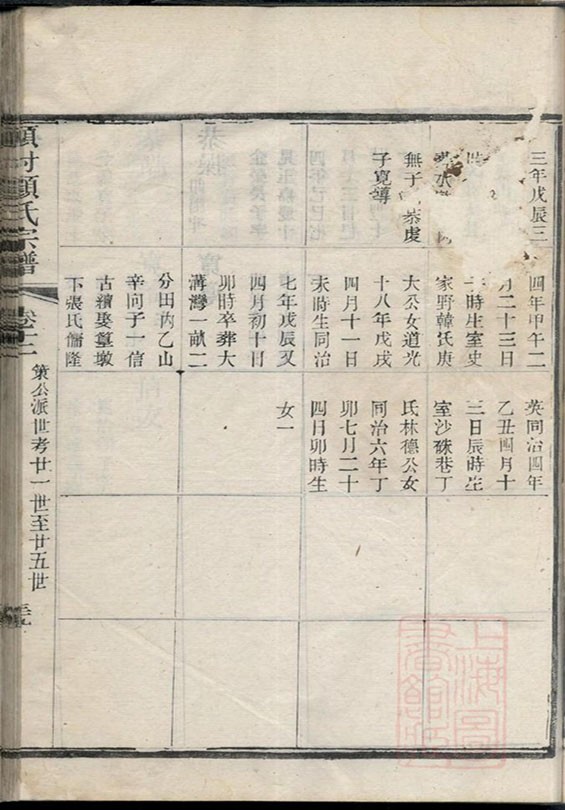 三年戊辰三
無子
恭虔
子寬簿
四年甲午二
月二十三日
時生室史
家野韓氏庚
大公女道光
十八年戊戌
四月十一日
未時生同治
七年戊辰又
四月初十日
卯時卒葬大
溝灣一畝二
分田内乙山
辛向子一信
古續娶墓墩
下張氏
隆
英同治四年
乙丑四月十
三日辰時生
室沙硃巷丁
氏林德公女
同治六年丁
卯七月二十
四日卯時生
女一
顧氏宗譜
卷十二
策公派世考廿一世至廿五世
上海圖書館藏